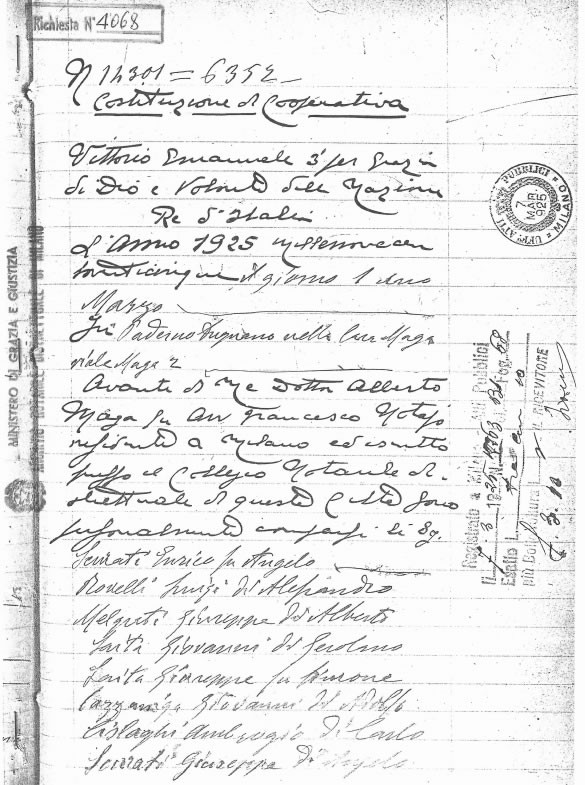 Richiesta N° 4068
N 14301 = 6352
Costituzione di Cooperativa
Vittorio Emanuele 3° per Grazia
di Dio e Volontà della Nazione
Re d'Italia
L'Anno 1925 millenovecen
venticinque il giorno 1 uno
Marzo
In Paderno Dugnano nella Casa Maga
viale Maga 2
Avante di Me Dottor Alberto
Maga fu Avv Francesco Notajo
residente a Milano ed iscritto
presso il Collegio Notarile di
strettuale di questa Città sono
personalmente comparsi li Sg.
Serrati Enrico fu Angelo
Rovelli Luigi di Alessandro
Giuseppe di Alberto
Saita Giovanni di Gerolmo
Saita Giuseppe fu Simone
Cazzaniga Giovanni di Adolfo
Cislaghi Ambrogio di Carlo
Serrati Giuseppe di Angelo
MINISTERO DI GRAZIA E GIUSTIZIA
DI MILANO
UFF° ATTI PUBBLICI MILANO
7 MAR 925
Registrato a Milano Atti Pubblici
Esatto L.
più Bollettazione L.
IL RICEVITORE